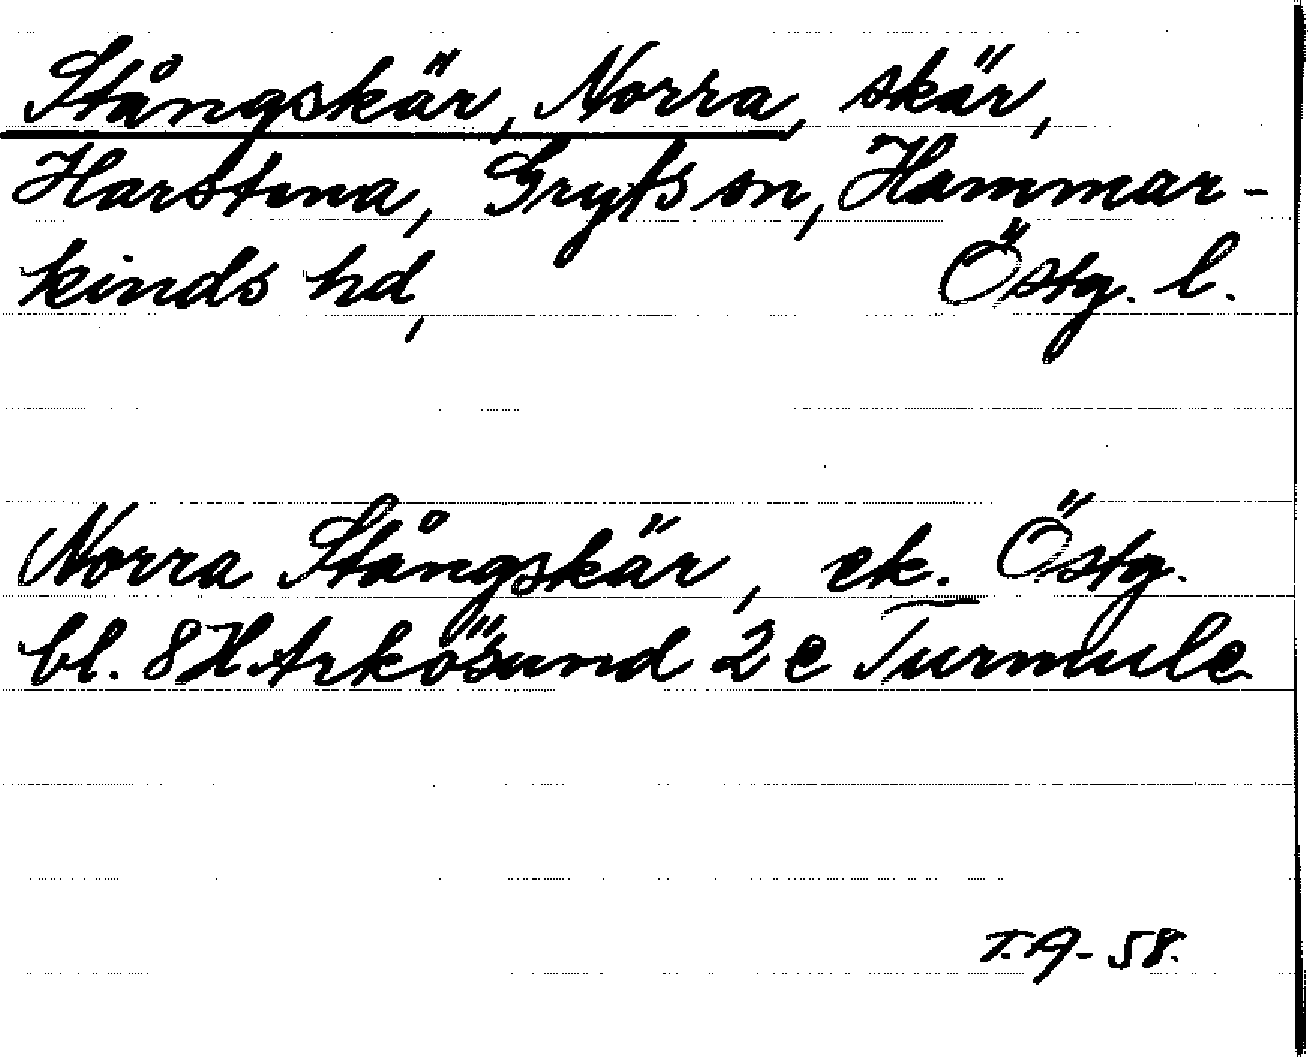 Stångskär, Norra, skär,
Harstena, Gryts sn, Hammar-
kinds hd, Östg. l.
Norra Stångskär, ek. Östg.
bl. 8H Arkösund 2 e Turmule
T.A-58.